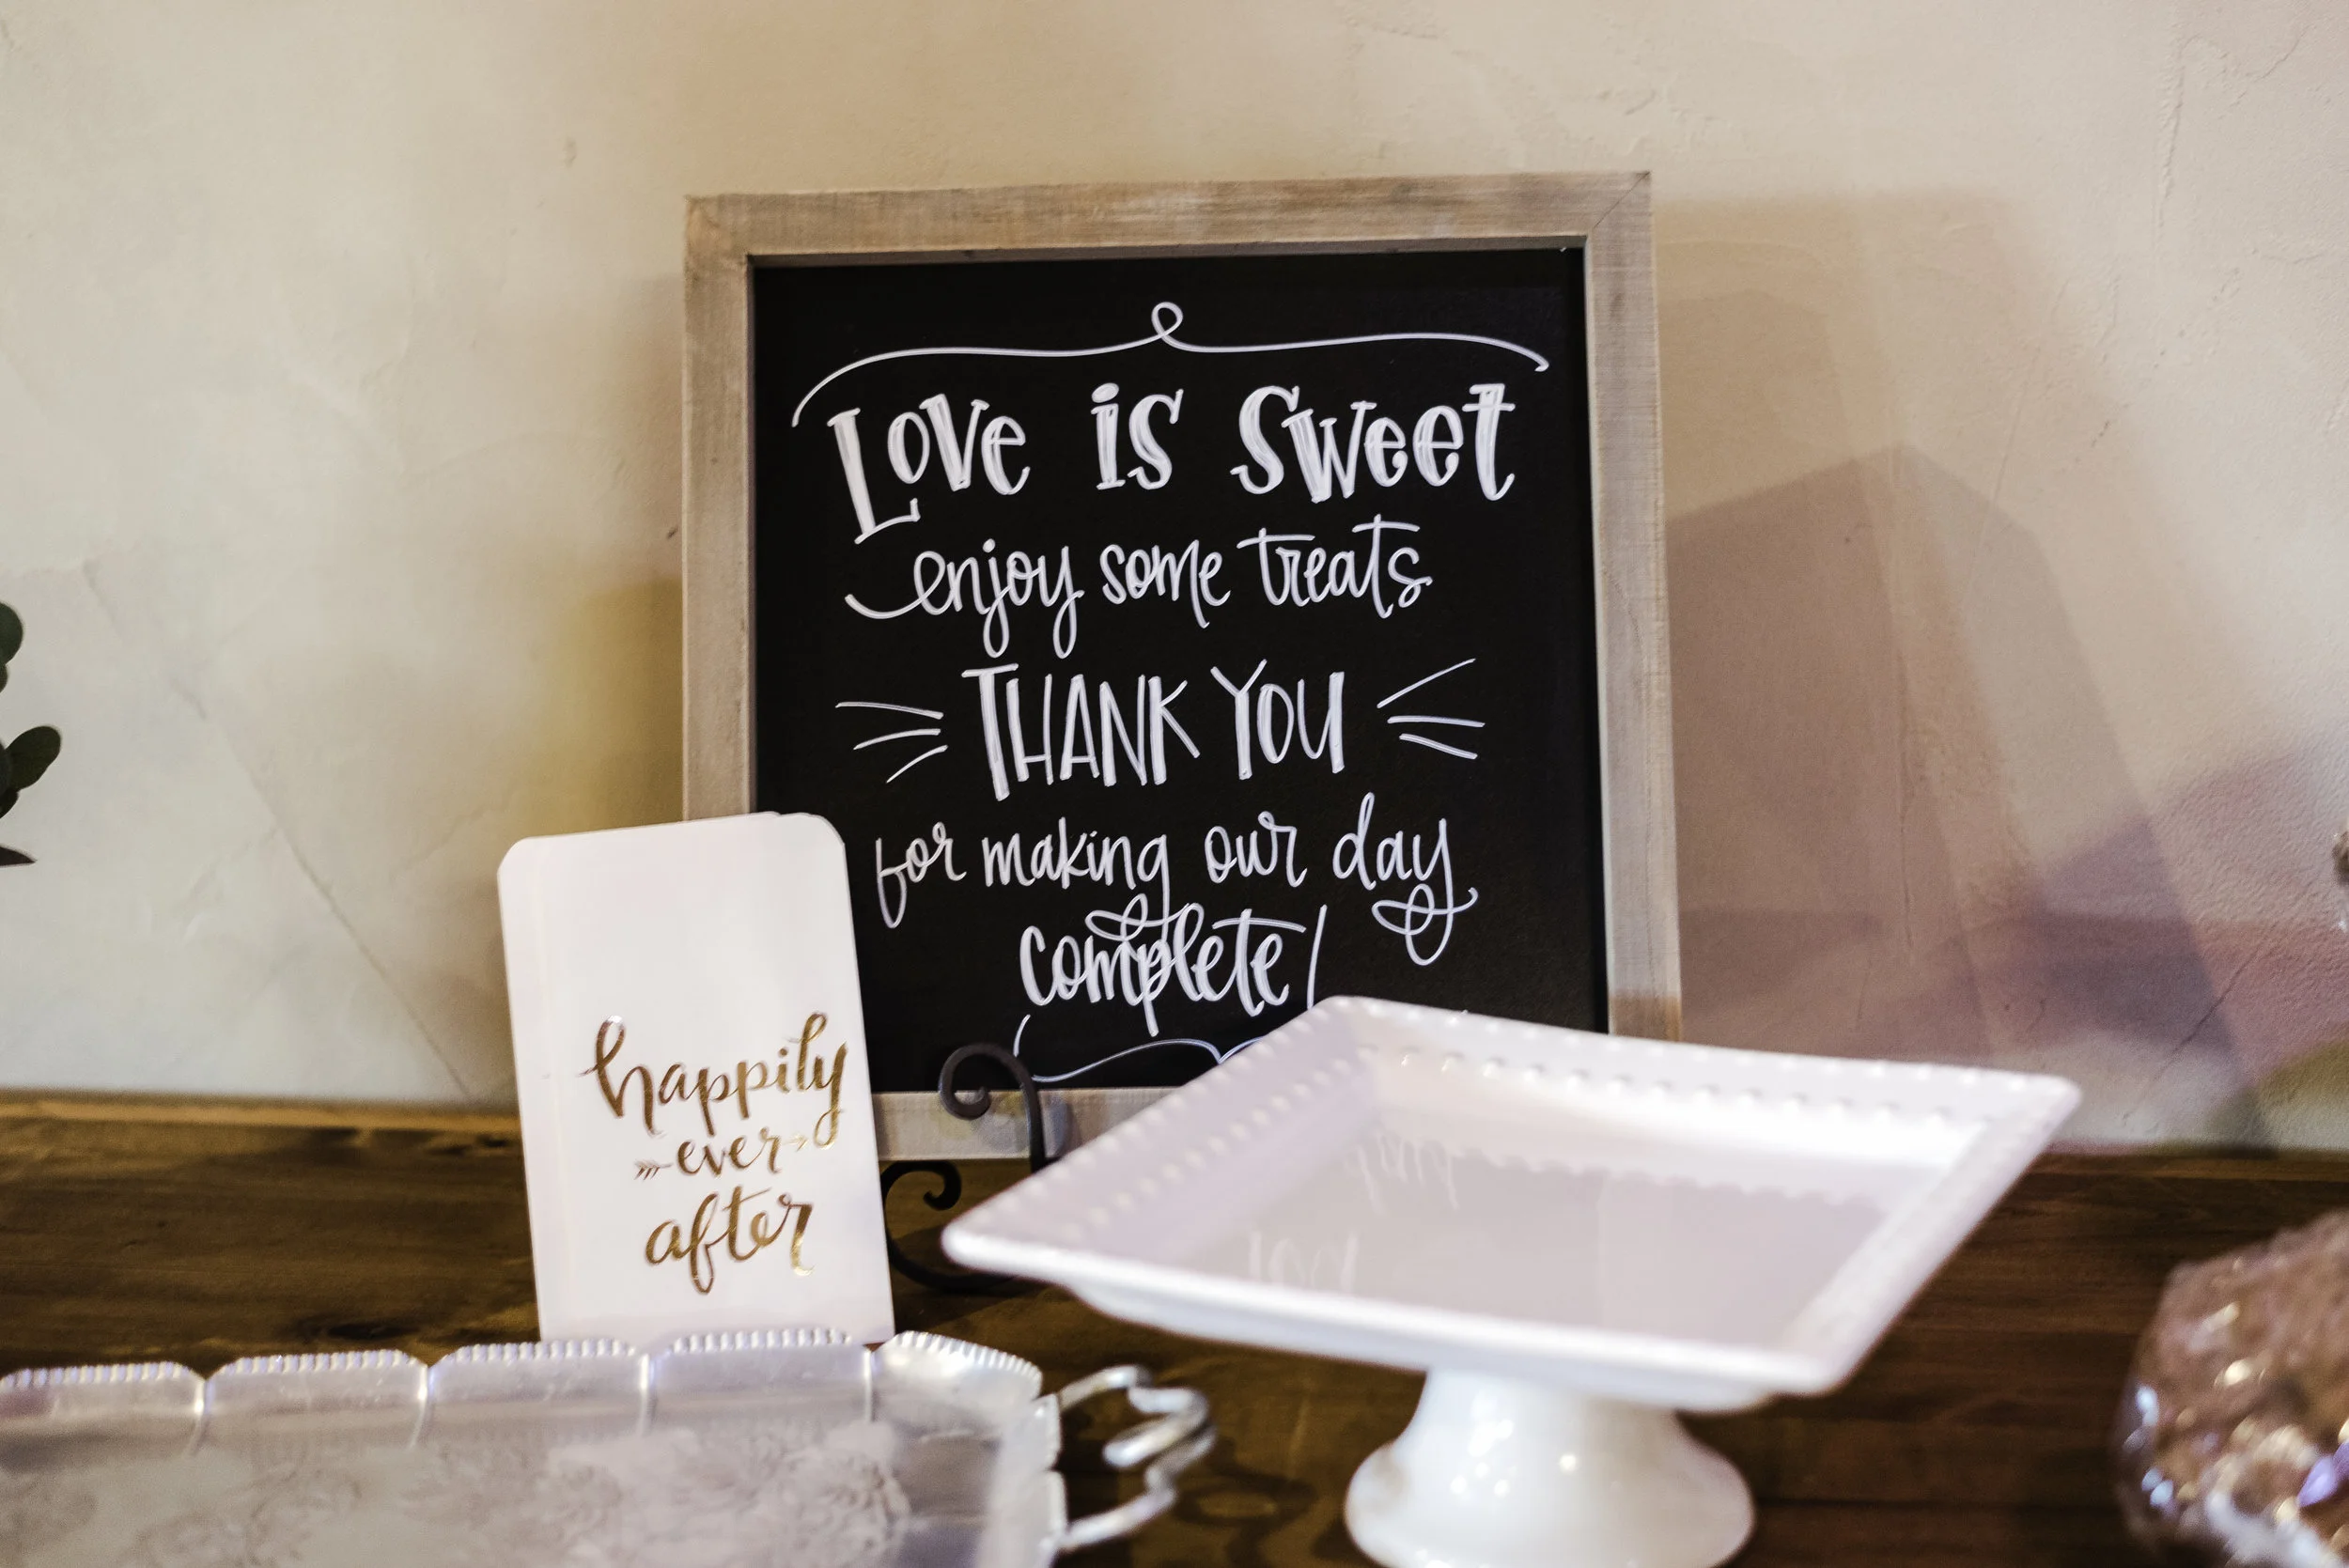 Love is Sweet
enjoy some treats
THANK YOU
for making our day
complete!
happily
ever
after